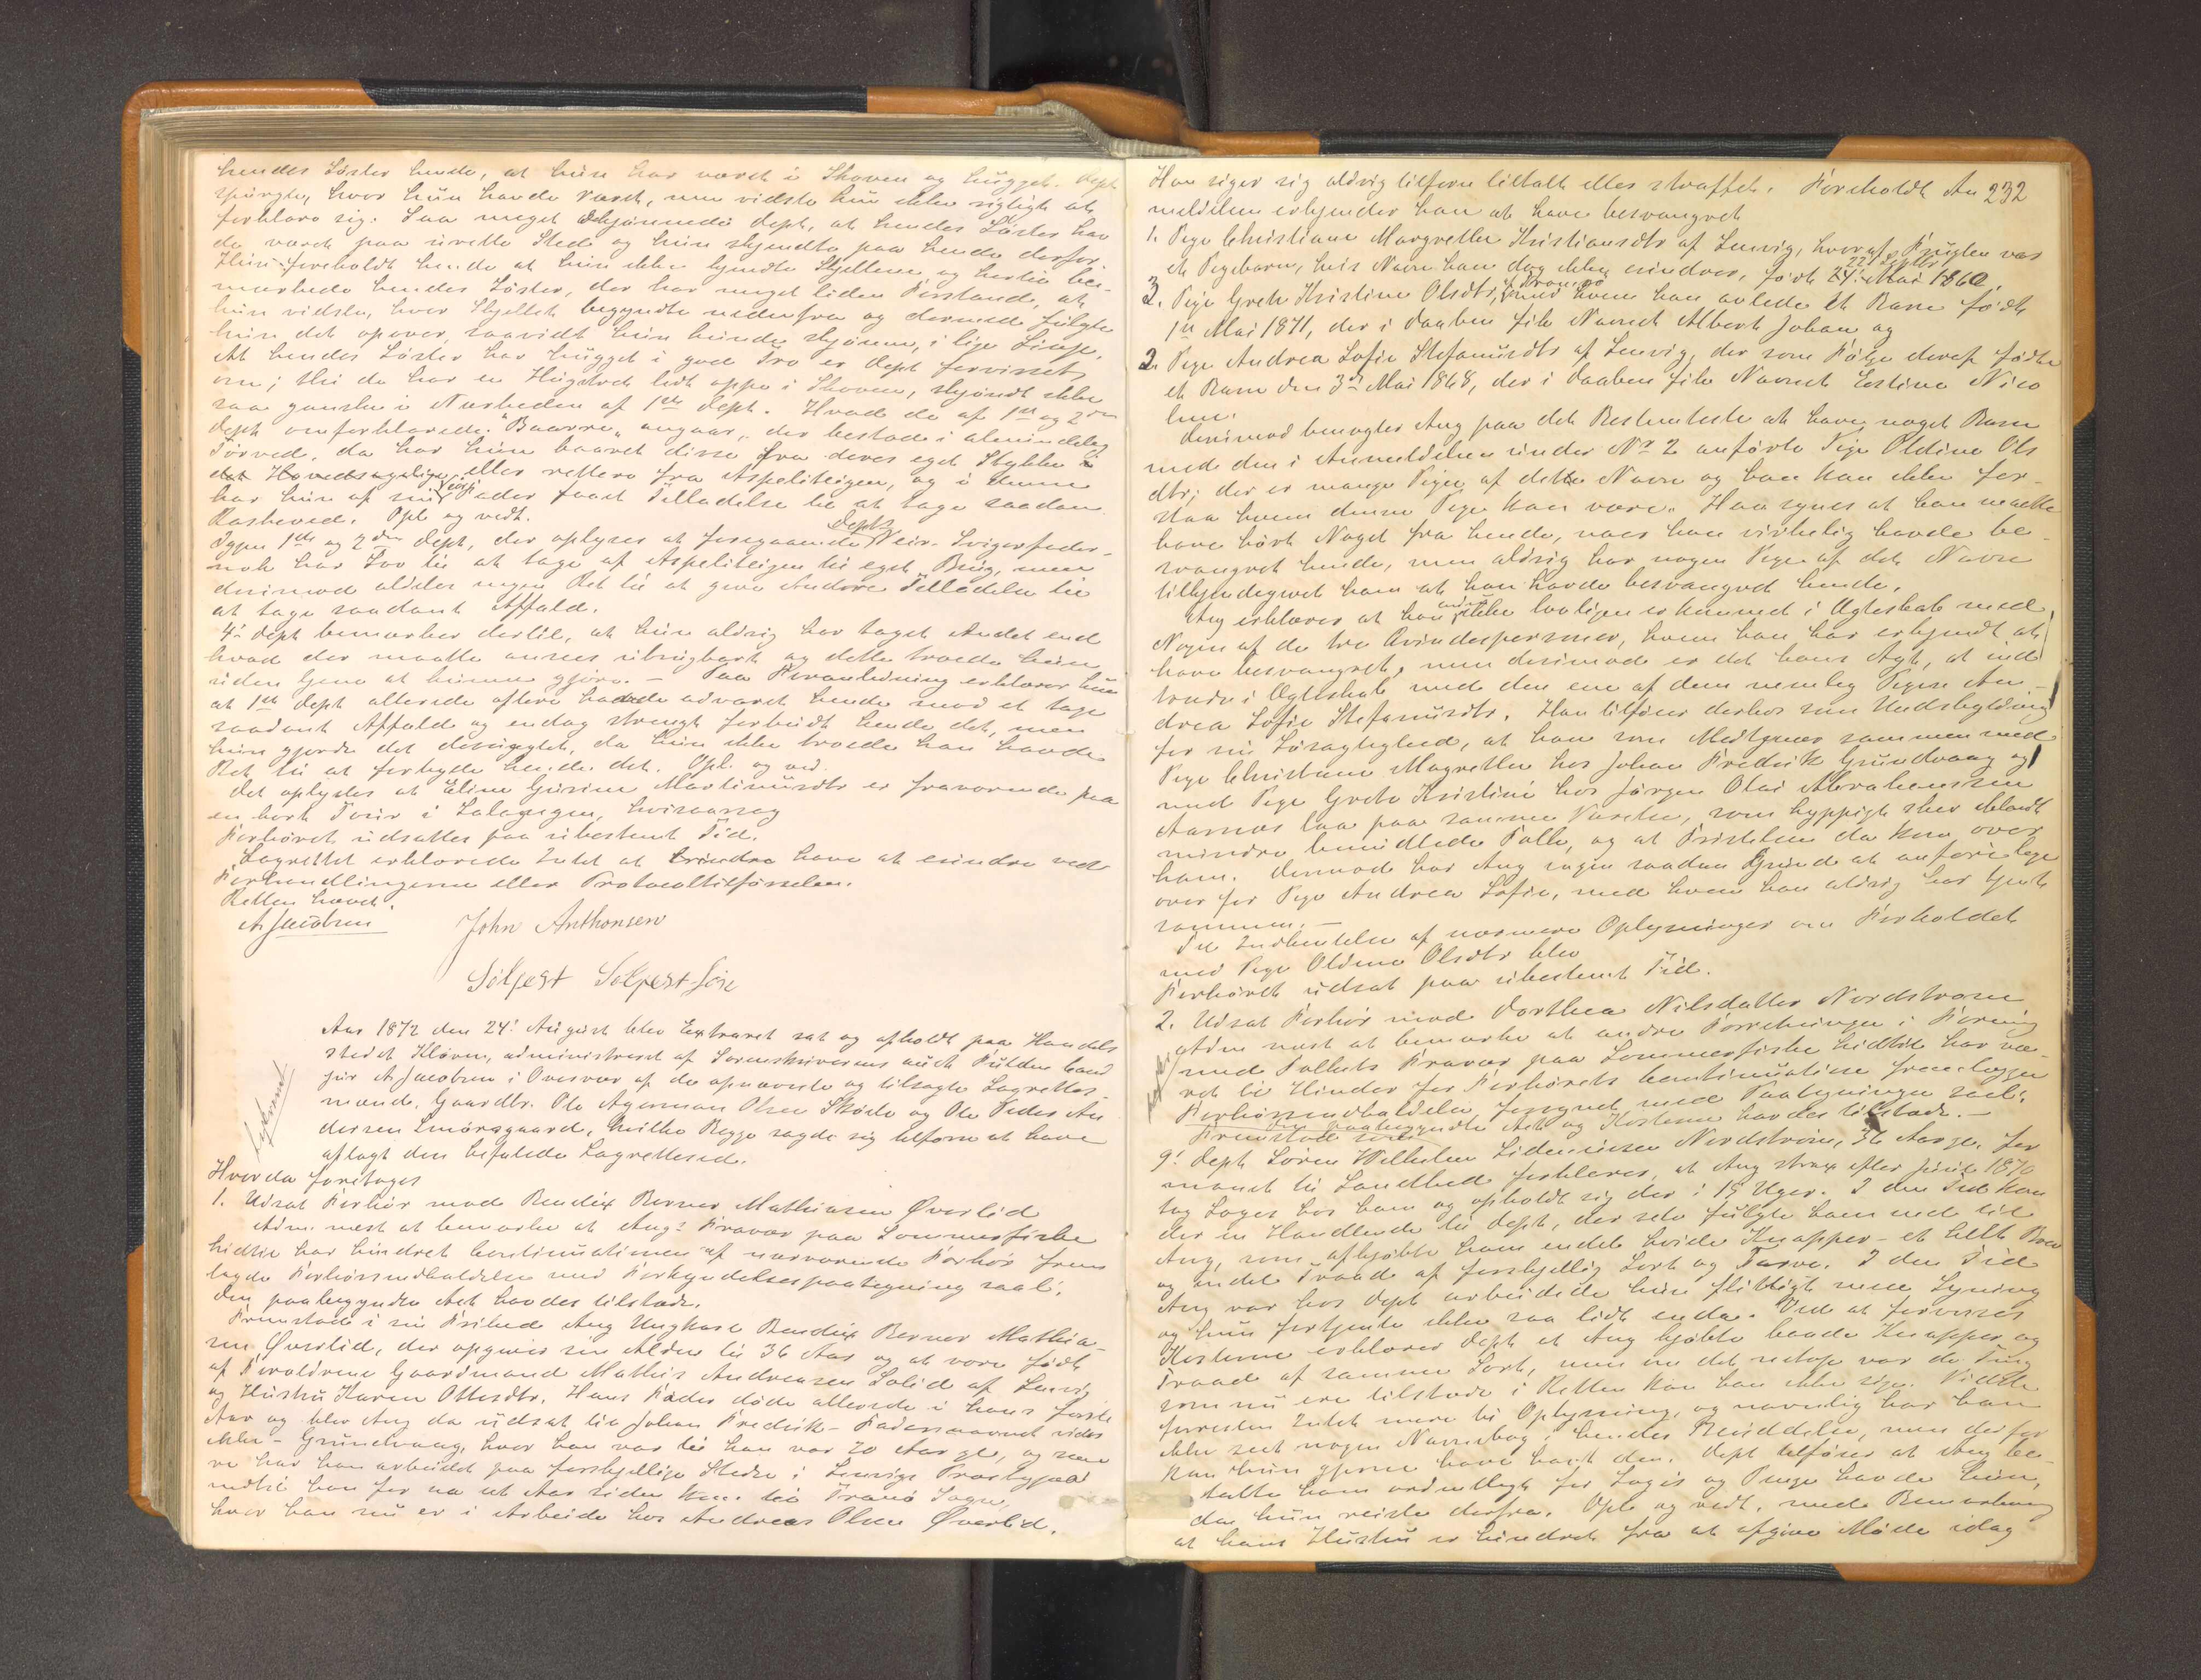 hendes Søster hende, at hun har været i Skoven og hugget. Dept
spurgte, hvor hun havde været, men vidste hun ikke rigtigt at
forklare sig. Saa meget skjønnede dept, at hendes Søster hav
de været paa urette Sted og hun skjendte paa hende derfor.
Hun foreholdt hende at hun ikke kjendte Skjellene, og hertil be-
mærkede hendes Søster, der har meget liden Forstand, at
hun vidste, hvor Skjellet begyndte nedenfra og dermed fulgte
hun det opover, saavidt hun kunde skjønne, i lige Linje.
At hendes Søster har hugget i god Tro er dept forvisset
om; thi de har en Hugstvet lidt oppe i Skoven, skjøndt ikke
saa ganske i Nærheden af 1ste dept. Hvad de af 1ste og 2den
dept omforklarede "Baarre" angaar, der bestode i almindelig
Tørved, da har hun baaret disse fra deres eget Stykke
det Hovedsagelige eller rettere fra Aspeliteigen, og i denne
har hun af sin Fader faaet Tilladelse til at tage saadan
Raskeved. Opl og vedt.
Igjen 1ste og 2den Dept, der oplyses at foregaaende Depts Svigerfader
nok har Lov til at tage af Aspeliteigen til eget Brug, men
derimod aldeles ingen Ret til at give Andre Tilladelse til
at tage saadant Affald.
4de dept bemærker dertil, at hun aldrig har taget Andet end
hvad der maatte ansees ubrugbart og dette troede hun
uden Gene at kunne gjøre. - Paa Foranledning erklærer hun
at 1ste dept allerede oftere havde advaret hende mod at tage
saadant Affald og endog strengt forbudt hende det, men
hun gjorde det desuagtet, da hun ikke troede han havde
Ret til at forbyde hende det. Opl. og ved.
Det oplystes at Eline Gurine Martinusdtr er fraværende paa
en kort Tour i Salangen, hvisaarsag
Forhøret udsattes paa ubestemt Tid.
Lagrettet erklærede Intet at erindre have at erindre ved
Forhandlingerne eller Protocoltilførselen.
Retten hævet.
A Jacobsen John Anthonsen
Solfest Solfest-søn
Aar 1872 den 24de August blev Extraret sat og afholdt paa Handels
stedet Kløven, administreret af Sorenskriverens aut. Fuldm. Cand
jur A Jacobsen i Overvær af de opnævnte og tilsagte Lagrettes-
mænd, Gaardbr. Ole Agerman Olsen Skøde og Ole Peder An
dersen Smørsgaard, hvilke Begge sagde sig tilforn at have
aflagt den befalede Lagretteseed.
Hvorda foretages
1. Udsat Forhør mod Bendix Berner Mathiasen Øverlid
Adm. mest at bemærke at Ang.s Fravær paa Sommerfiske
hidtil har hindret Continuationen af nærværende Forhør frem
lagde Forhørsindkaldelse med Forkyndelsespaategning saal.
Den paabegyndte Act havdes tilstede.
Fremstod i sin Frihed Ang Ungkarl Bendix Berner Mathia-
sen Øverlid, der opgiver sin Alder til 36 Aar og at være født
af Forældrene Gaardmand Mathis Andreasen Solid af Lenvig
og Hustru Karen Ottesdtr. Hans Fader døde allerede i hans første
Aar og blev Ang da udsat til Johan Fredrik - Fadernavnet vides
ikke - Grundvaag, hvor han var til han var 20 Aar gl., og sene
re har han arbeidet paa forskjellige Steder i Lenvigs Præstegjæld
indtil han for na et Aar siden kom til Tranø Sogn,
hvor han nu er i Arbeide hos Andreas Olsen Øverlid.
232
Han siger sig aldrig tilforn tiltalt eller straffet. Foreholdt An
meldelsen erkjender han at have besvangret
1. Pige Christiane Margrethe Kristiansdtr af Lenvig, hvoraf Frugten var
et Pigebarn, hvis Navn han dog ikke erindrer, født 24de Mai 1860,
3. Pige Grete Kristine Olsdtr, Tranø med hvem han avlede et Barn født
1ste Mai 1871, der i Daaben fik Navnet Albert Johan og
2. Pige Andrea Sofie Stefanusdtr af Lenvig, der som Følge deraf fødte
et Barn den 3die Mai 1868, der i Daaben fik Navnet Estine Nico
line.
Derimod benegter Ang paa det Bestemteste at have noget Barn
med den i Anmeldelsen under No 2 anførte Pige Oldine Ols
dtr; der er mange Piger af dette Navn og han kan ikke for-
staa hvem denne Pige kan være. Han synes at han maatte
have hørt Noget fra hende, naar han virkelig havde be-
svangret hende, men aldrig har nogen Pige af det Navn
tilkjendegivet ham at han havde besvangret hende.
Ang erklærer at han ikke lovligen er hindret i Ægteskab med
Nogen af de tre Qvindespersoner, hvem han har erkjendt at
have besvangret, men derimod er det hans Agt, at ind
træde i Ægteskab med den ene af dem nemlig Pigen An-
drea Sofie Stefanusdtr. Han tilføier derhos som Undskyldning
for sin Løsagtighed, at han som Medtjener sammen med
Pige Christiane Magrethe hos Johan Fredrik Grundvaag og
med Pige Grete Kristine hos Jørgen Olai Abrahamssen
Aarnes laa paa samme Værelse, som hyppigt sker blandt
mindre bemidlede Folk, og at Fristelsen da kom over
ham. Derimod har Ang ingen saadan Grund at anføre lige
over for Pige Andrea Sofie, med hvem han aldrig har tjent
sammen.
Til Indhentelse af nærmere Oplysninger om Forholdet
med Pige Oldine Olsdtr blev
Forhøret udsat paa ubestemt Tid.
2. Udsat Forhør mod Dorthea Nilsdatter Nordstrøm
Adm mest at bemærke at andre Forretninger i Forening
med Folkets Fravær paa Sommerfiske hidtil har væ-
ret til Hinder for Forhørets Continuation fremlægger
Forhørsindkaldelse, forsynet med Paategninger saal.
Den paabegyndte Act og Kosterne havdes tilstede. -
Fremstod som
9de dept Søren Wilhelm Sidenius Nordstrøm, 36 Aar gl. For
manet til Sandhed forklarer, at Ang strax efter Juul 1870
tog Logis hos ham og opholdt sig der i 15 Uger. I den Tid kom
der en Handlende til dept, der selv fulgte ham ned til
Ang, som afkjøbte ham endel hvide Knapper - et helt Brev
og endel Traad af forskjellig Sort og Farve. I den Tid
Ang var hos dept arbeidede hun flittigt med Syning
og hun fortjente ikke saa lidt enda. Ved at forevises
Kosterne erklærer dept at Ang kjøbte baade Knapper og
Traad af samme Sort, men om det netop var de Ting
som nu ere tilstede i Retten kan han ikke sige. Vidste
forresten Intet mere til Oplysning, og navnlig har han
ikke seet nogen Navnebog i hendes Besiddelse, men derfor
kan hun gjerne have havt den. Dept tilføier at Ang be-
talte ham ordentligt for Logis og Penge havde hun,
da hun reiste derfra. Opl og vedt, med Bemærkning
at hans Hustru er hindret fra at afgive Møde idag